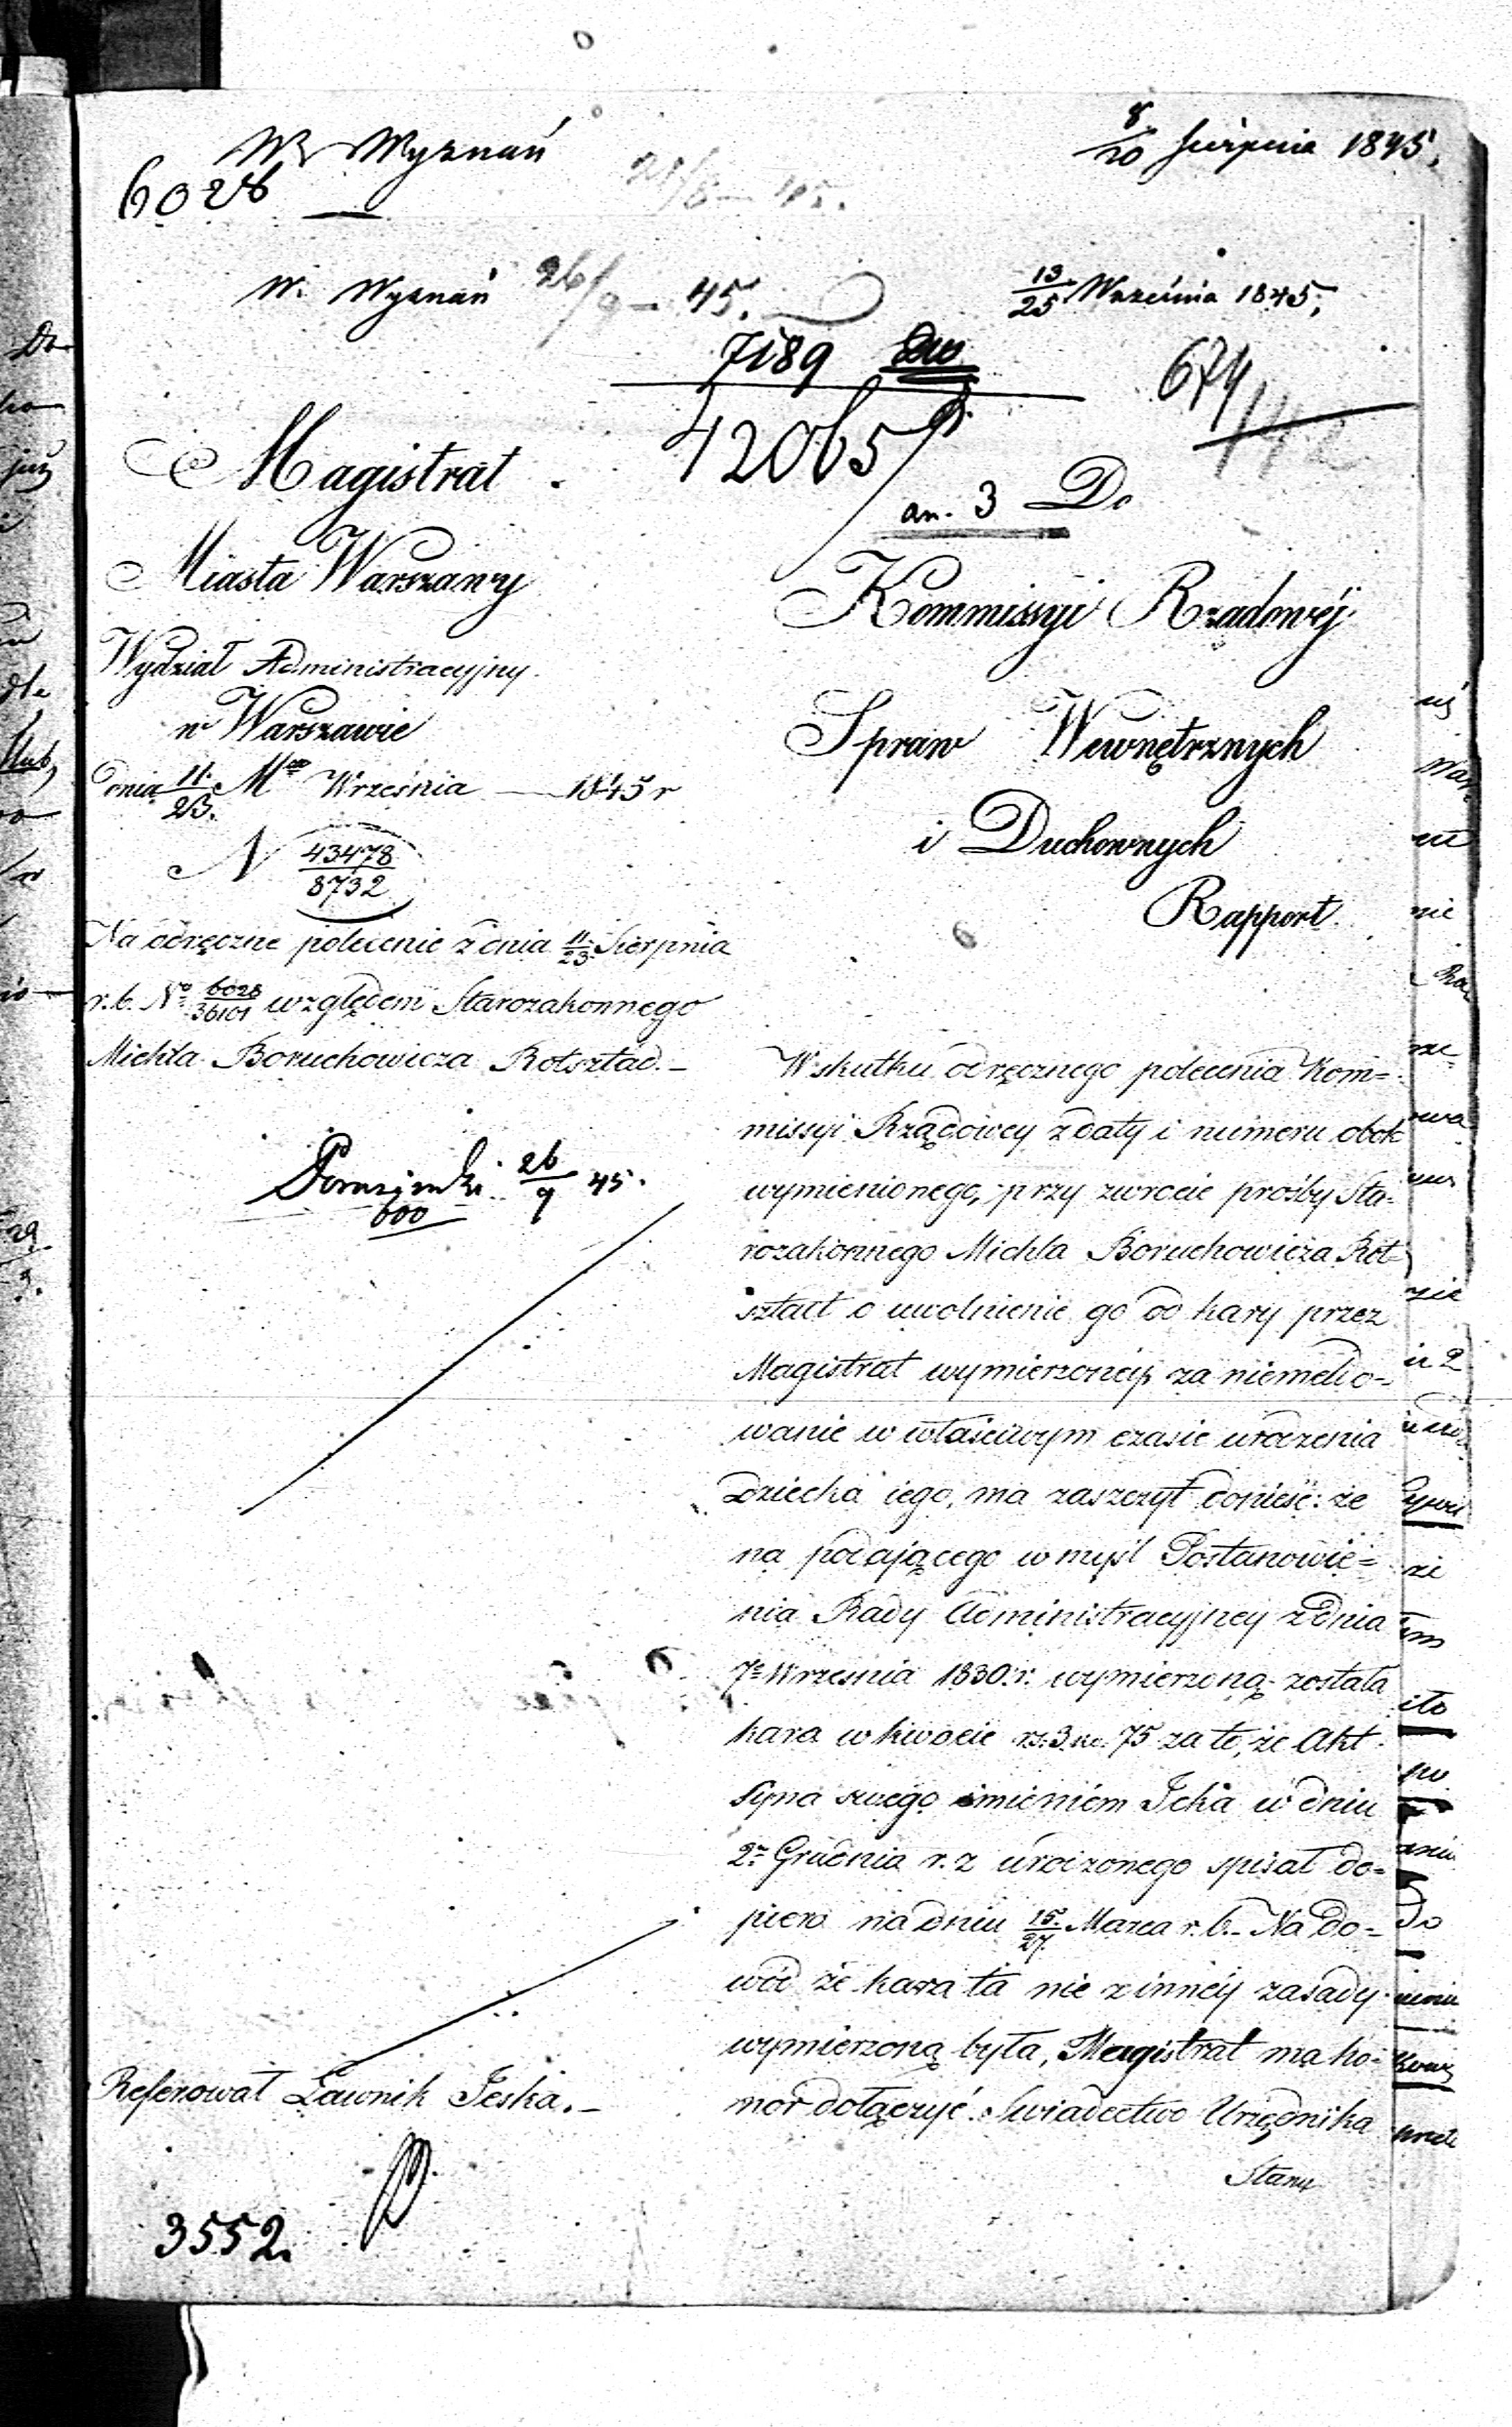 W. Wyznań
8/20 Sierpnia 1845.
6028
W. Wyznań 26/9 – 45.
13/25 Września 1845.
7189
674
42065
an. 3
Magistrat
Miasta Warszawy
Wydział Administracyjny.
w Warszawie
dnia 11/23. Mca Września 1845 r
N 43478/8732
Na odręczne polecenie z dnia 11/23 Sierpnia
r.b. No 6028/36101 względem Starozakonnego
Michla Boruchowicza Rotsztad.–
26/9 45.
600
Referował Ławnik Jeska.–
3552.
Do
Kommissyi Rządowéj
Spraw Wewnętrznych
i Duchownych
Rapport.
W skutku odręcznego polecenia Kom=
missyi Rządowey z daty i numeru obok
wymienionego, przy zwrocie prośby Sta-
rozakonnego Michla Boruchowicza Rot-
sztadt o uwolnienie go od kary przez
Magistrat wymierzonéy, za niemeldo-
wanie w właściwym czasie urodzenia
Dziecka iego, ma zaszczyt donieść: że
na podającego w myśl Postanowie=
nia Rady Administracyjney z dnia
7o Września 1830. r. wymierzoną została
kara w kwocie rs. 3. ko. 75 za to, że Akt
syna swego imieniem Icka w dniu
2o Grudnia r. z urodzonego spisał do-
piero na dniu 15/27. Marca r. b.– Na do-
wód że kara ta nie z innéy zasady
wymierzoną była, Magistrat ma ho-
nor dołączyć Swiadectwo Urzędnika
Stanu